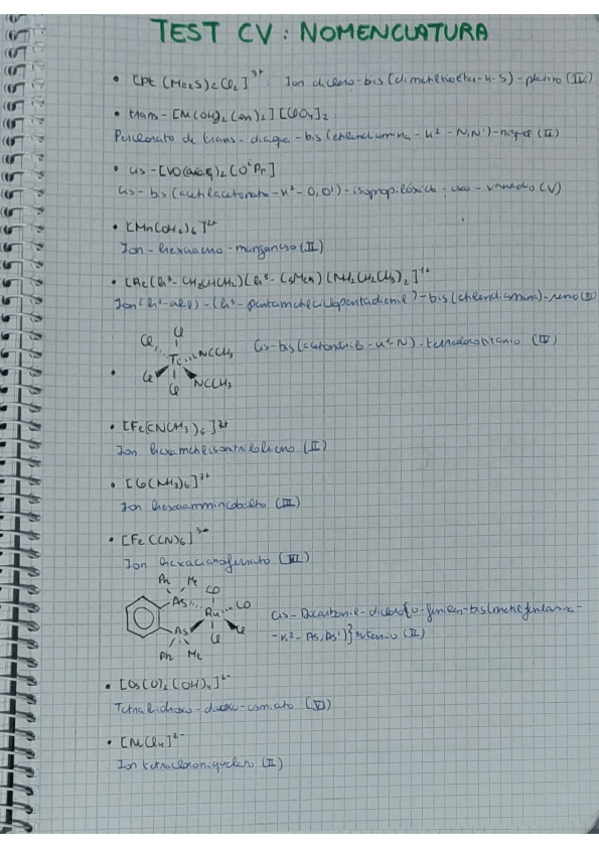 TEST CV: NOMENCLATURA
• [Pt(Me₂S)₂Cl₂]³⁺: Ion dicloro-bis(dimetiltioéter-κ-S)-platino (IV)
• trans-[Ni(OH₂)₂(en)₂][ClO₄]₂
Perclorato de trans-diaqua-bis(etilendiamina-κ²-N,N')-níquel (II)
• cis-[VO(acac)₂(OⁱPr)]
Cis-bis(acetilacetonato-κ²-O,O')-isopropilóxido-oxo-vanadio (V)
• [Mn(OH₂)₆]²⁺
Ion-hexaacuo-manganeso (II)
Cl Cl
Cl Tc NCCH₃
Cl NCCH₃
Cis-bis(acetonitrilo-κ²-N)-tetraclorotitanio (IV)
• [Fe(CNCH₃)₆]²⁺
Ion hexametilisonitrilohierro (II)
• [Co(NH₃)₆]³⁺
Ion hexaammincobalto (III)
• [Fe(CN)₆]³⁻
Ion hexacianoferrato (III)
Ph Me
As CO
Ru CO
As Cl Cl
Ph Me
cis-Dicarbonil-dicloro{o-fenilen-bis(metilfenilarsina-
-κ²-As,As')}rutenio (II)
• [Os(O)₂(OH)₄]²⁻
Tetrahidroxo-dioxo-osmiato (VI)
• [NiCl₄]²⁻
Ion tetracloroniquelato (II)